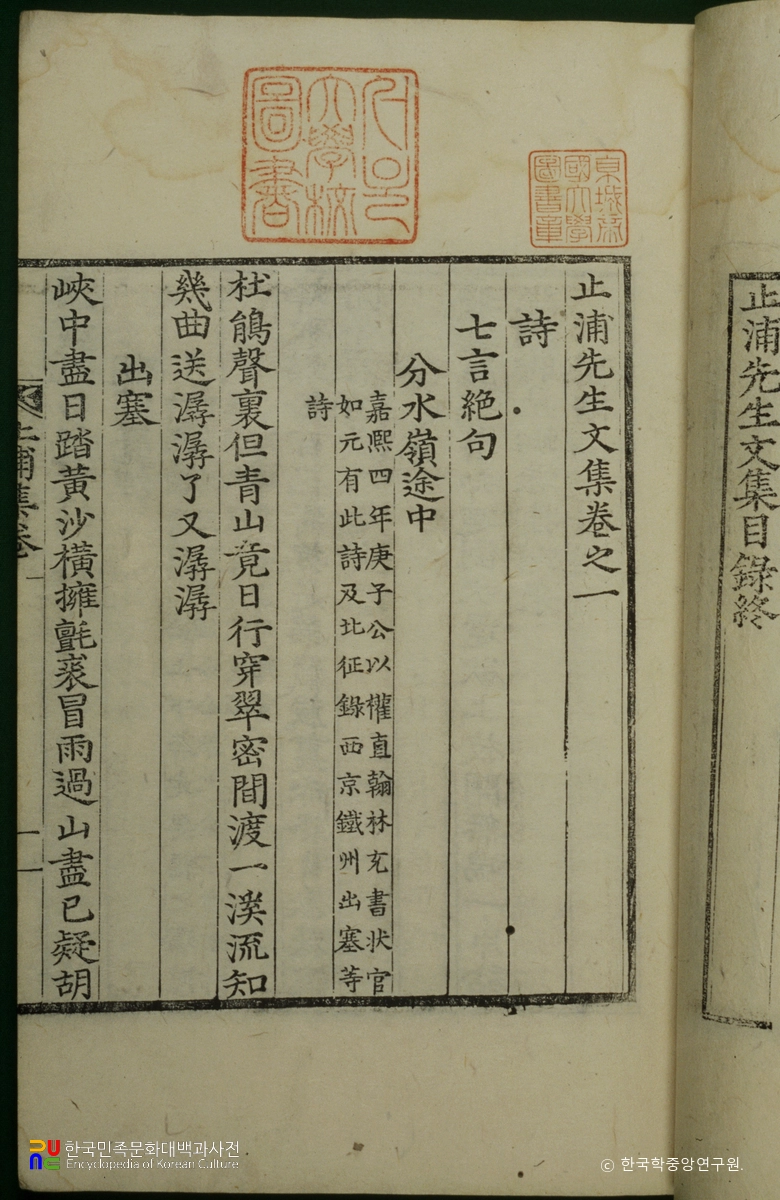 止浦先生文集目錄終
京城帝國大學圖書章
서울大學校圖書
止浦先生文集卷之一
詩
七言絶句
分水嶺途中
嘉熙四年庚子公以權直翰林充書狀官
如元有此詩及北征錄西京鐵州出塞等
詩
杜鵑聲裏但青山竟日行穿翠密間渡一溪流知
幾曲送潺潺了又潺潺
出塞
峽中盡日踏黃沙橫擁氈裘冒雨過山盡已疑胡
止浦集卷一
한국민족문화대백과사전
Encyclopedia of Korean Culture
ⓒ 한국학중앙연구원.